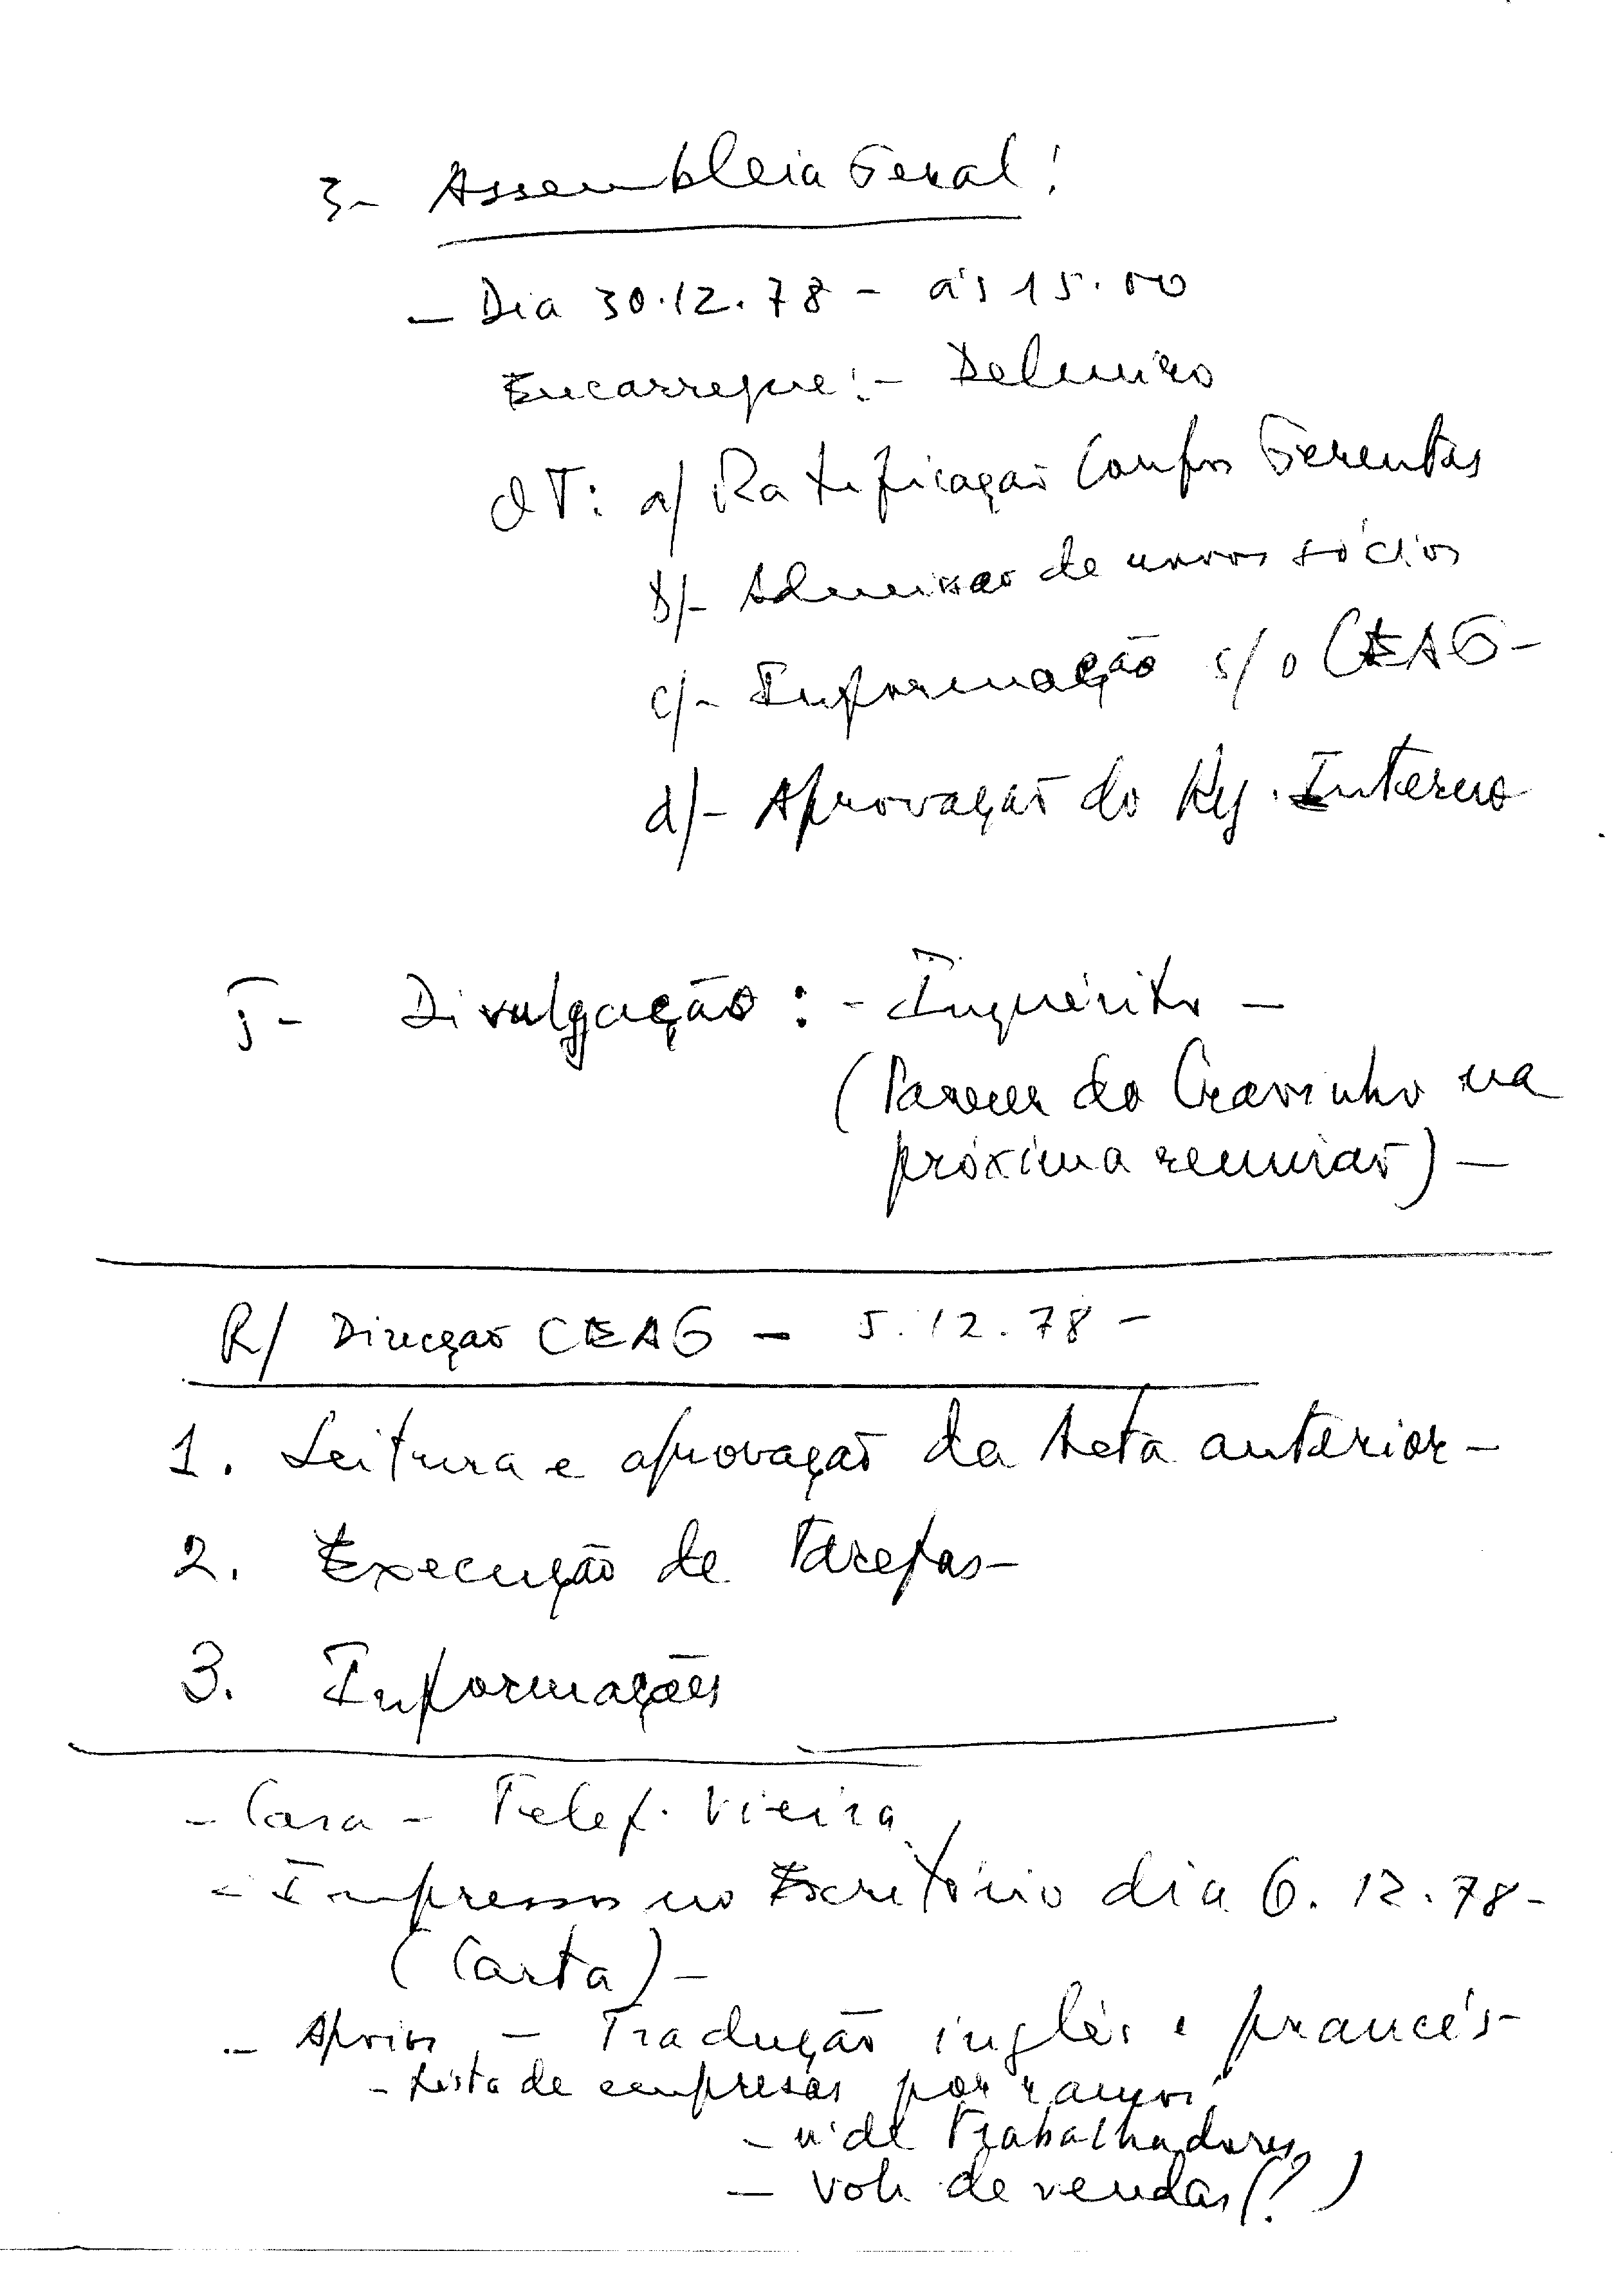 3- Assembleia Geral:
- Dia 30.12.78 - às 15.00
Encarregue:- Delmiro
OT: a/ Ratificação Gerentes
b/- Admissão de novos sócios
c/- Informação s/o CEAG-
d/- Aprovação do Reg. Interno
5- Divulgação: - Inquérito -
(Parecer do Cravinho na
próxima reunião) -
R/ Direcção CEAG - 5.12.78 -
1. Leitura e aprovação da Acta anterior -
2. Execução de tarefas -
3. Informações
- Casa - Telef. Vieira
- Impressos no Escritório dia 6.12.78 -
(Carta) -
- Apoios - Tradução inglês e francês -
- Lista de empresas por ramos
- nº de trabalhadores
- Vol. de vendas (?)